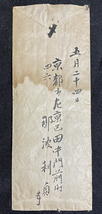 五月二十四日
京都市左京区田中門前町
四六
那波利貞